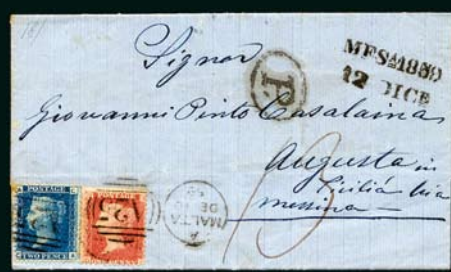 Signor
MESSA 1859
12 DICE
P.
Giovanni Pinto Casalaina
Augusta in
Sicilia via
Messina
POSTAGE
TWO PENCE
A 25
A
MALTA
DE